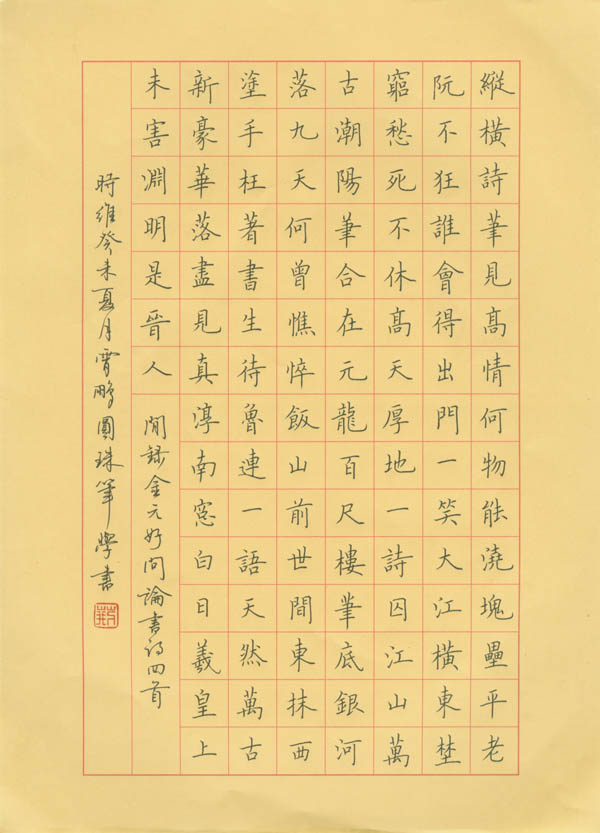 縱橫詩筆見高情何物能澆塊壘平老
阮不狂誰會得出門一笑大江橫東埜
窮愁死不休高天厚地一詩囚江山萬
古潮陽筆合在元龍百尺樓筆底銀河
落九天何曾憔悴飯山前世間東抹西
塗手枉著書生待魯連一語天然萬古
新豪華落盡見真淳南窓白日羲皇上
未害淵明是晉人 閒錄金元好問論書詩四首
時維癸未夏月霄鵬圓珠筆學書